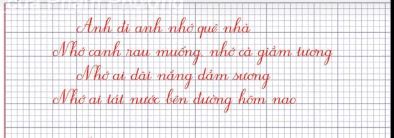 Anh đi anh nhớ quê nhà
Nhớ canh rau muống, nhớ cà giầm tương
Nhớ ai dãi nắng dầm sương
Nhớ ai tát nước bên đường hôm nao